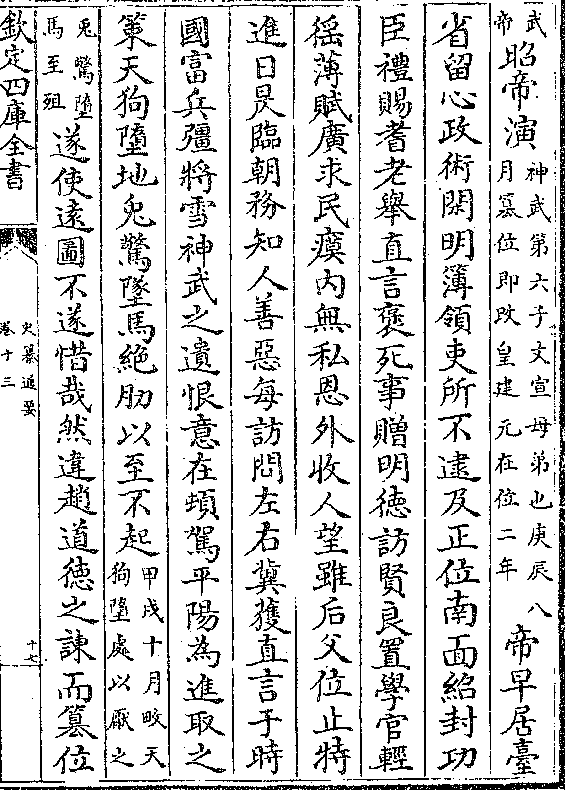 武帝昭帝演神武第六子文宣母弟也庚辰八月篡位即改皇建元在位二年帝早居臺
省留心政術閑明簿領吏所不逮及正位南面紹封功
臣禮賜耆老舉直言褒死事贈明德訪賢良置學官輕
徭薄賦廣求民瘼内無私恩外收人望雖后父位止特
進日昃臨朝務知人善惡每訪問左右冀獲直言于時
國富兵彊將雪神武之遺恨意在頓駕平陽為進取之
策天狗墮地兔驚墜馬絶肋以至不起甲戌十月畋天狗墮處以厭之
兔驚墮馬至殂遂使遠圖不遂惜哉然違趙道德之諫而篡位
欽定四庫全書
史纂通要
卷十三
十七